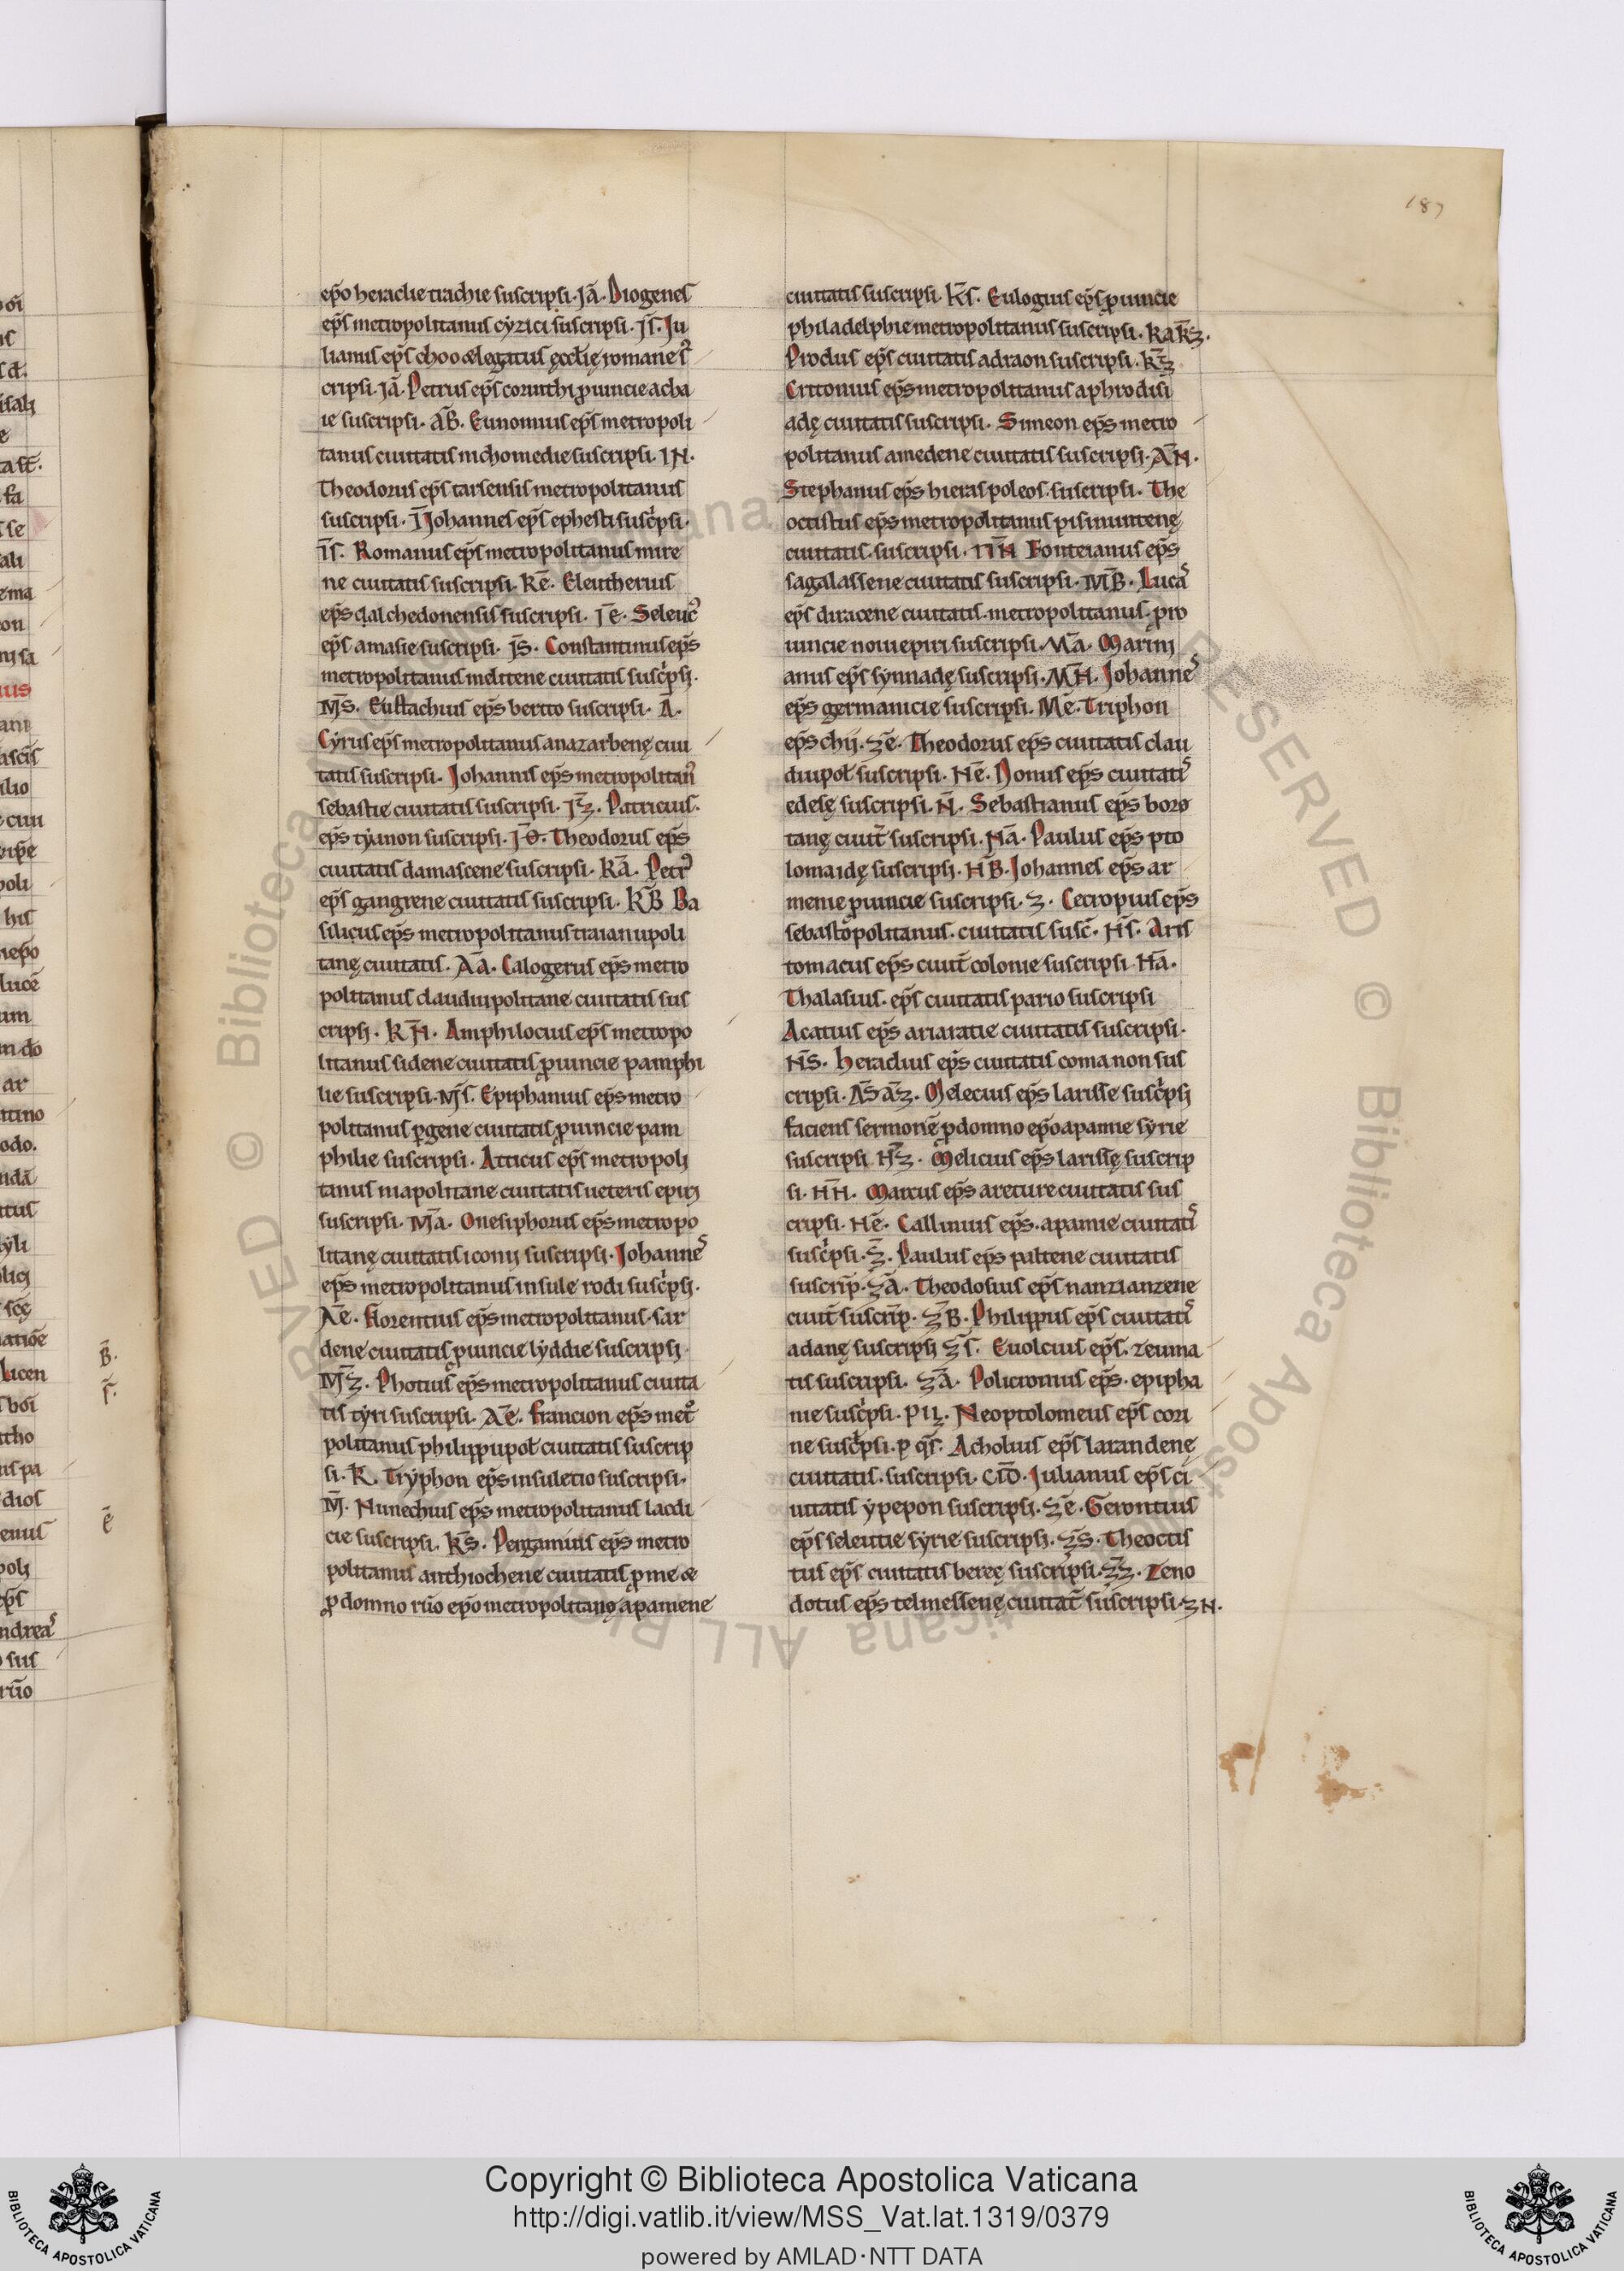 187
ep̄o heraclie trachie suscripsi. Jā. Diogenes
ep̄s metropolitanus cẏzici suscripsi. Js̄. Ju
lianus ep̄s choo & legatus ęccl̄ię romane s
cripsi. Jā. Petrus ep̄s corinthi ꝓuincie acha
ie suscripsi. AB̄. Eunomius ep̄s metropoli
tanus ciuitatis nichomedie suscripsi. IN.
Theodorus ep̄s tarsensis metropolitanus
suscripsi. Ī Johannes ep̄s ephesi suscͥpsi.
īs. Romanus ep̄s metropolitanus mire
ne ciuitatis suscripsi. Kē. Eleutherius
ep̄s calchedonensis suscripsi. Jē. Seleuc᾽
ep̄s amasie suscripsi. Js̄. Constantinus ep̄s
metropolitanus melitene ciuitatis suscͥpsi.
Ms̄. Eustachius ep̄s berito suscripsi. Ā.
Cẏrus ep̄s metropolitanus anazarbenę ciui
tatis suscripsi. Johannis ep̄s metropolitan᾽
sebastie ciuitatis suscripsi. Jʒ̄. Patricius.
ep̄s tẏanon suscripsi. Jθ̄. Theodorus ep̄s
ciuitatis damascene suscripsi. Kā. Petr᾽
ep̄s gangrene ciuitatis suscripsi. KB̄ Ba
silicus ep̄s metropolitanus traianupoli
tanę ciuitatis. Aā. Calogerus ep̄s metro
politanus claudiupolitane ciuitatis sus
cripsi. KN̄. Amphilocius ep̄s metropo
litanus sidene ciuitatis ꝓuincie pamphi
lie suscripsi. Ms̄. Epiphanius ep̄s metro
politanus ꝑgene ciuitatis ꝓuincie pam
philie suscripsi. Atticus ep̄s metropoli
tanus niapolitane ciuitatis ueteris epiri
suscripsi. Mā. Onesiphorus ep̄s metropo
litanę ciuitatis iconii suscripsi. Johanneˢ
ep̄s metropolitanus insule rodi suscͥpsi.
Aē. Florentius ep̄s metropolitanus sar
dene ciuitatis ꝓuincie lẏddie suscripsi.
Mʒ̄. Photius ep̄s metropolitanus ciuita
tis tẏri suscripsi. Aē. Francion ep̄s met᾽
politanus philippupoł ciuitatis suscrip
si. K̄. Trẏphon ep̄s insule cio suscripsi.
M̄. Nunechius ep̄s metropolitanus laodi
cie suscripsi. Ks̄. Pergamius ep̄s metro
politanus anthiochene ciuitatis ꝓ me &
ꝓ domno rufo ep̄o metropolitano apamene
ciuitatis suscripsi. Ks̄. Eulogius ep̄s ꝓuincie
philadelphie metropolitanus suscripsi. KaKʒ̄.
Proclus ep̄s ciuitatis adraon suscripsi. Kʒ̄
Critonius ep̄s metropolitanus aphrodisi
adę ciuitatis suscripsi. Simeon ep̄s metro
politanus amedene ciuitatis suscripsi. AN̄.
Stephanus ep̄s hieraspoleos. suscripsi. The
octistus ep̄s metropolitanus pisinuntenę
ciuitatis. suscripsi. Fonteianus ep̄s
sagalassene ciuitatis suscripsi. MB̄. Lucaˢ
ep̄s diracene ciuitatis. metropolitanus. pro
uincie noui epiri suscripsi. Mā. Marini
anus ep̄s sẏnnadę suscripsi. MN̄. Johanneˢ
ep̄s germanicie suscripsi. Mē. Triphon
ep̄s chij. ʒē. Theodorus ep̄s ciuitatis clau
diupoł suscripsi. Nē. Nonus ep̄s ciuitatiˢ
edesę suscripsi. N̄. Sebastianus ep̄s boro
tanę ciuit̄ suscripsi. Nā. Paulus ep̄s pto
lomaidę suscripsi. NB̄. Johannes ep̄s ar
menie ꝓuincie suscripsi. ʒ. Cecropius ep̄s
sebastopolitanus. ciuitatis susc̄. Ns̄. Aris
tomacus ep̄s ciuit̄ colonie suscripsi. Nā.
Thalasius. ep̄s ciuitatis pario suscripsi
Acatius ep̄s ariaratie ciuitatis suscripsi.
Ns̄. Heraclius ep̄s ciuitatis comanon sus
cripsi. As̄ aʒ̄. Melecius ep̄s larisse suscͥpsi
faciens sermonē ꝓ domno ep̄o apamie sẏrie
suscripsi Nʒ̄. Melicius ep̄s larissę suscrip
si. NN̄. Marcus ep̄s areture ciuitatis sus
cripsi. Nē. Callinius ep̄s. apamie ciuitatiˢ
suscͥpsi. ʒ̄. Paulus ep̄s paltene ciuitatis
suscrip̄. ʒā. Theodosius ep̄s nanzianzene
ciuit̄ suscrip̄. ʒB̄. Philippus ep̄s ciuitatiˢ
adanę suscripsi ʒs̄. Euolcius ep̄s. zeuma
tis suscripsi. ʒā. Policronius ep̄s. epipha
nie suscͥpsi. Neoptolomeus ep̄s cori
ne suscͥpsi. p qs̄. Acholius ep̄s larandenę
ciuitatis. suscripsi. Julianus ep̄s ci
uitatis ẏpepon suscripsi. ʒē. Gerontius
ep̄s seleutie sẏrie suscripsi. ʒs̄. Theoctis
tus ep̄s ciuitatis bereę suscripsi. ʒʒ̄. Zeno
dotus ep̄s telmessenę ciuitat̄ suscripsi. ʒN.
B̄.
s̄.
ē
Copyright © Biblioteca Apostolica Vaticana
http://digi.vatlib.it/view/MSS_Vat.lat.1319/0379
powered by AMLAD·NTT DATA